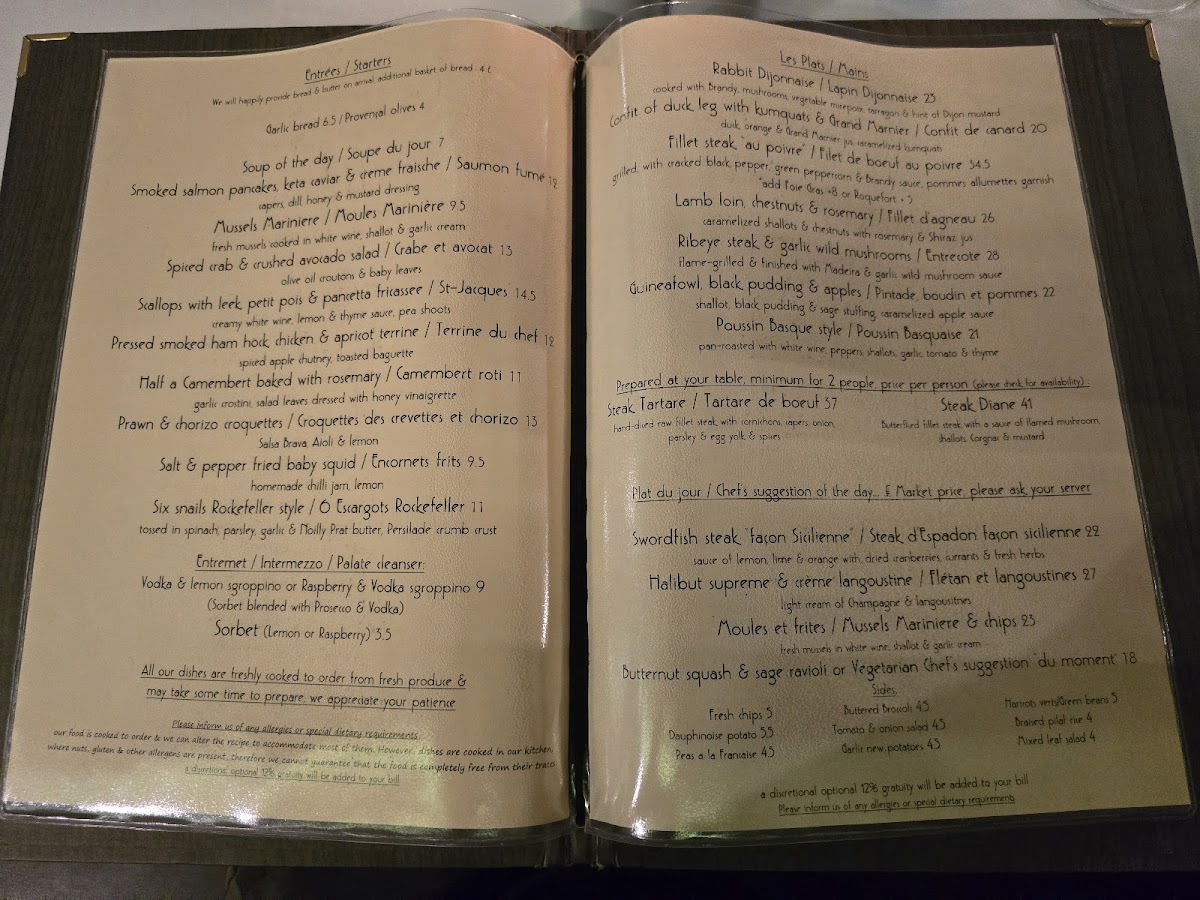 Entrées / Starters
We will happily provide bread & butter on arrival, additional basket of bread : 4 £
Garlic bread 6.5 / Provençal olives 4
Soup of the day / Soupe du jour 7
Smoked salmon pancakes, keta caviar & creme fraische / Saumon fumé 12
capers, dill, honey & mustard dressing
Mussels Mariniere / Moules Marinière 9.5
fresh mussels cooked in white wine, shallot & garlic cream
Spiced crab & crushed avocado salad / Crabe et avocat 13
olive oil croutons & baby leaves
Scallops with leek, petit pois & pancetta fricassee / St-Jacques 14.5
creamy white wine, lemon & thyme sauce, pea shoots
Pressed smoked ham hock, chicken & apricot terrine / Terrine du chef 12
spiced apple chutney, toasted baguette
Half a Camembert baked with rosemary / Camembert roti 11
garlic crostini, salad leaves dressed with honey vinaigrette
Prawn & chorizo croquettes / Croquettes des crevettes et chorizo 13
Salsa Brava, Aioli & lemon
Salt & pepper fried baby squid / Encornets frits 9.5
homemade chilli jam, lemon
Six snails Rockefeller style / 6 Escargots Rockefeller 11
tossed in spinach, parsley, garlic & Noilly Prat butter, Persilade crumb crust
Entremet / Intermezzo / Palate cleanser:
Vodka & lemon sgroppino or Raspberry & Vodka sgroppino 9
(Sorbet blended with Prosecco & Vodka)
Sorbet (Lemon or Raspberry) 3.5
All our dishes are freshly cooked to order from fresh produce &
may take some time to prepare, we appreciate your patience
Please inform us of any allergies or special dietary requirements
our food is cooked to order & we can alter the recipe to accommodate most of them. However, dishes are cooked in our kitchen,
where nuts, gluten & other allergens are present, therefore we cannot guarantee that the food is completely free from their traces
a discretional optional 12% gratuity will be added to your bill
Les Plats / Mains
Rabbit Dijonnaise / Lapin Dijonnaise 23
cooked with Brandy, mushrooms, vegetable mirepoix, tarragon & hint of Dijon mustard
Confit of duck leg with kumquats & Grand Marnier / Confit de canard 20
duck, orange & Grand Marnier jus, caramelized kumquats
Fillet steak "au poivre" / Filet de boeuf au poivre 34.5
grilled, with cracked black pepper, green peppercorn & Brandy sauce, pommes allumettes garnish
*add Foie Gras +8 or Roquefort + 3
Lamb loin, chestnuts & rosemary / Fillet d'agneau 26
caramelized shallots & chestnuts with rosemary & Shiraz jus
Ribeye steak & garlic wild mushrooms / Entrecote 28
flame-grilled & finished with Madeira & garlic wild mushroom sauce
Guineafowl, black pudding & apples / Pintade, boudin et pommes 22
shallot, black pudding & sage stuffing, caramelized apple sauce
Poussin Basque style / Poussin Basquaise 21
pan-roasted with white wine, peppers, shallots, garlic, tomato & thyme
Prepared at your table, minimum for 2 people, price per person (please check for availability) :
Steak Tartare / Tartare de boeuf 37
hand-diced raw fillet steak, with cornichons, capers, onion,
parsley & egg yolk & spices
Steak Diane 41
Butterflied fillet steak, with a sauce of flamed mushroom,
shallots, Corgnac & mustard
Plat du jour / Chef's suggestion of the day... £ Market price, please ask your server
Swordfish steak "façon Sicilienne" / Steak d'Espadon façon sicilienne 22
sauce of lemon, lime & orange with, dried cranberries, currants & fresh herbs
Halibut supreme & crème langoustine / Flétan et langoustines 27
light cream of Champagne & langousitnes
Moules et frites / Mussels Mariniere & chips 23
fresh mussels in white wine, shallot & garlic cream
Butternut squash & sage ravioli or Vegetarian Chef's suggestion 'du moment' 18
Sides:
Fresh chips 5
Buttered Broccoli 4.5
Haricots verts/Green beans 5
Dauphinoise potato 5.5
Tomato & onion salad 4.5
Braised pilaf rice 4
Peas a la Francaise 4.5
Garlic new potatoes 4.5
Mixed leaf salad 4
a discretional optional 12% gratuity will be added to your bill
Please inform us of any allergies or special dietary requirements